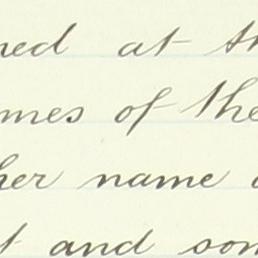 ned at th
mes of the
her name
t and som